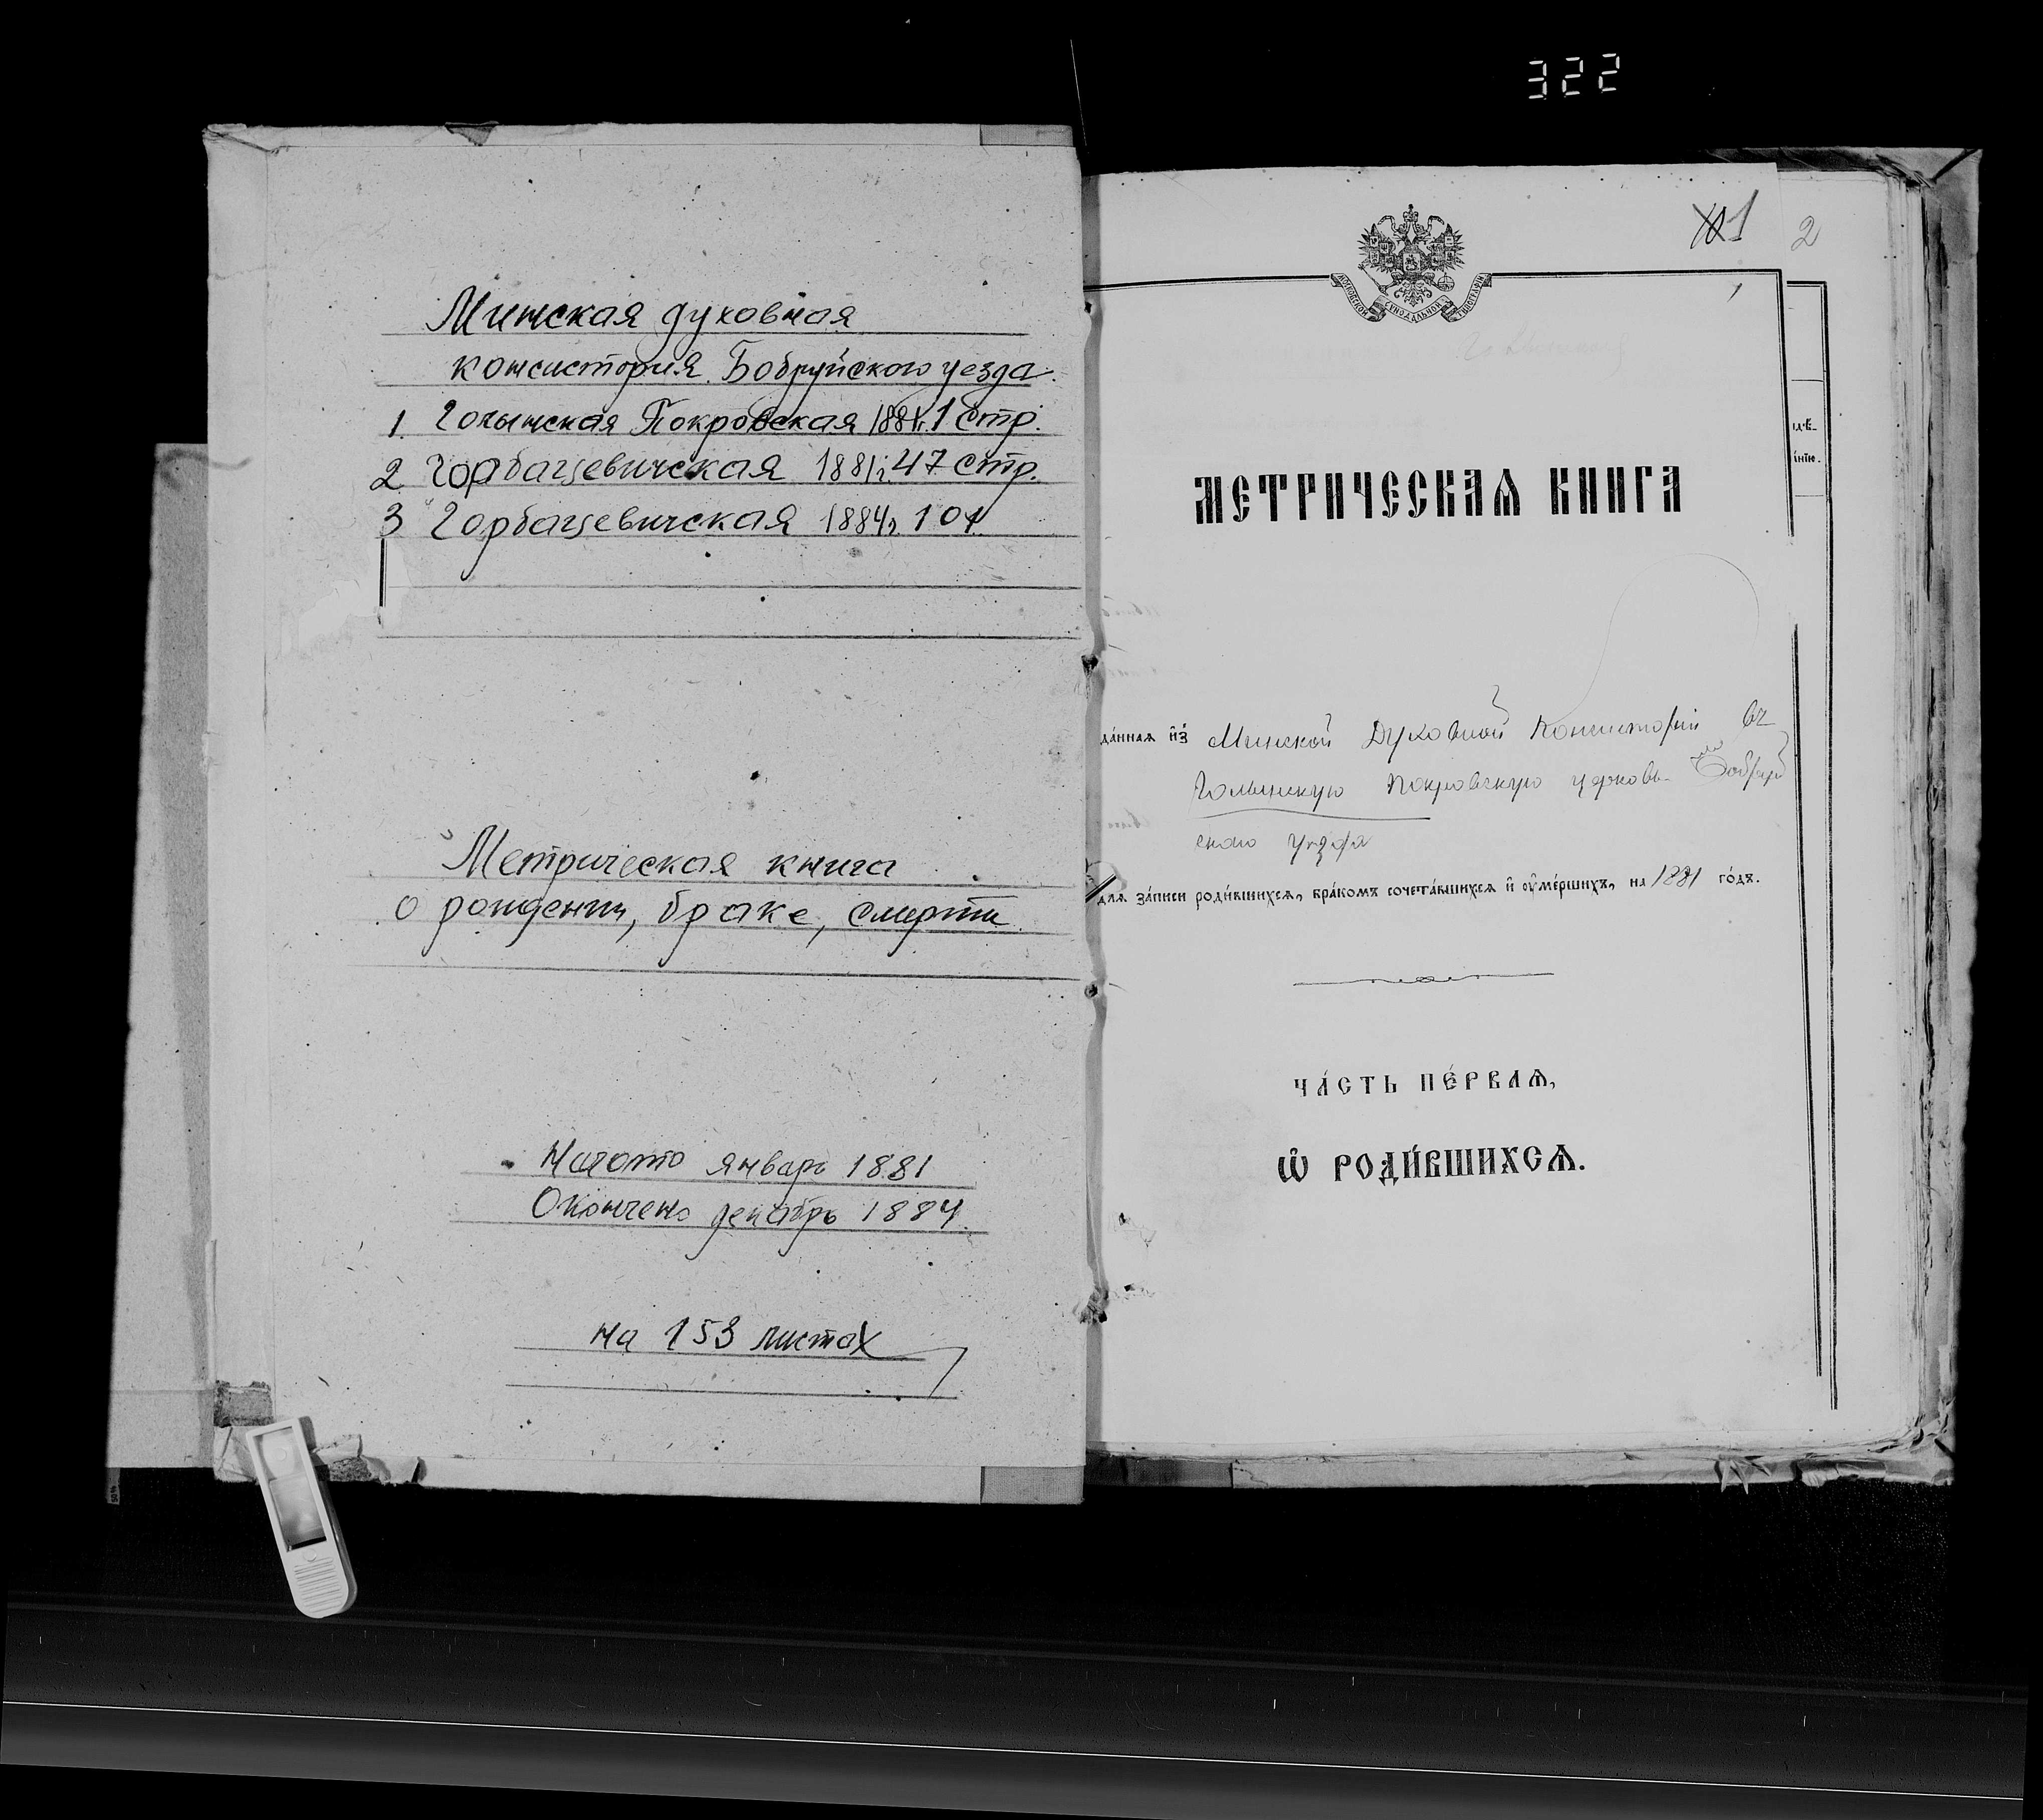 322
Минская духовная
консистория Бобруйского уезда.
1. Голынская Покровская 1881г. 1 стр.
2 Горбацевичская 1881г. 47 стр.
3 Горбацевичская 1884г. 101
Метрическая книга
о рождении, браке, смерти
Начато январь 1881
Окончено декабрь 1884
на 153 листах
1 2
МОСКОВСКОЙ СѴНОДАЛЬНОЙ ТѴПОГРАФІИ
МЕТРИЧЕСКАѦ КНИГА
да́нная и҆з̾ Минской Духовной Консисторіи въ
Голынскую Покровскую церковь Бобруй
скаго уѣзда
для за́писи роди́вшихся, бра́комъ сочета́вшихся и҆ ᲂу҆ме́ршихъ, на 1881 го́дъ.
ЧА́СТЬ ПЕ́РВАѦ,
Ѽ РОДИ́ВШИХСѦ.